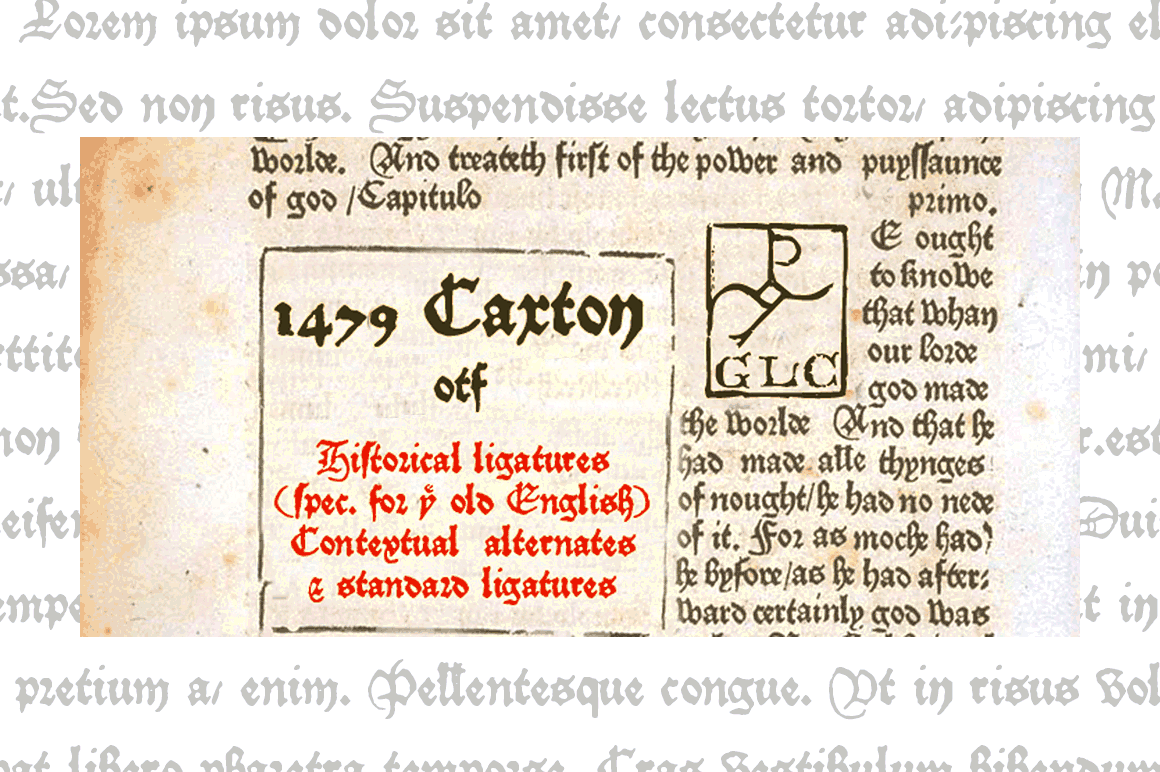 Lorem ipsum dolor sit amet/ consectetur adi:piscing el
t.Sed non risus. Suspendisse lectus tortor/ adipiscing
worlde. And treateth firſt of the power and puyſſaunce
of god /Capitulo primo.
1479 Caxton
otf
Hiſtorical ligatures
(ſpec. for yͤ old Engliſh)
Contextual alternates
& standard ligatures
GLC
E ought
to knowe
that whan
our lorde
god made
the worlde And that he
had made alle thynges
of nought/he had no nede
of it. For as moche had
he byfore/as he had after:
ward certainly god was
pretium a/ enim. Pellentesque congue. Ut in risus vol
libero pharetra tempor Cras vestibulum bibendum